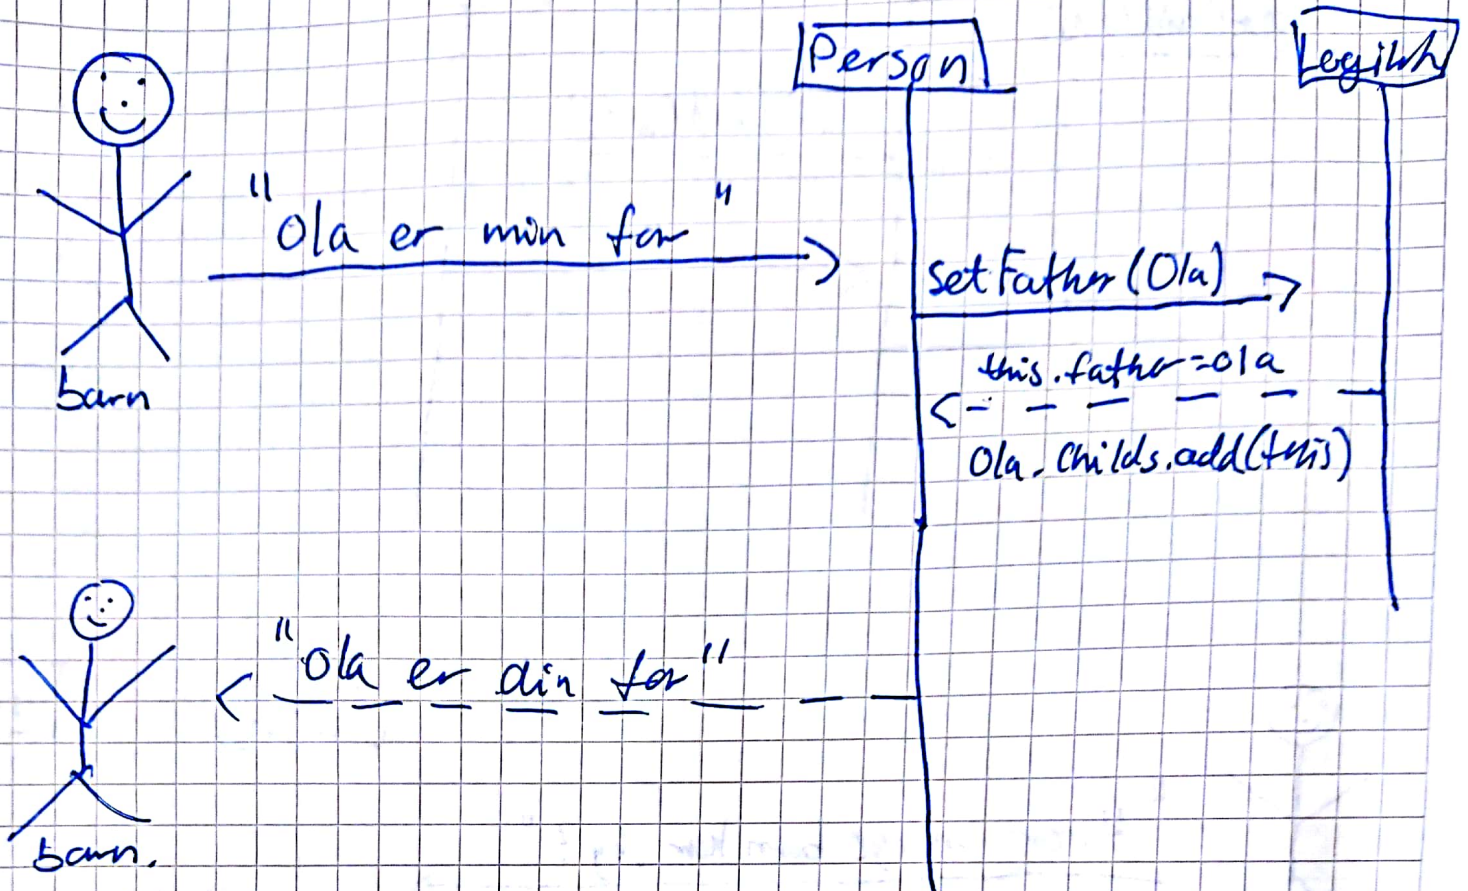 Person
Logikk
"Ola er min far"
setFather(Ola)
this.father=ola
barn
Ola.Childs.add(this)
"Ola er din far"
barn.